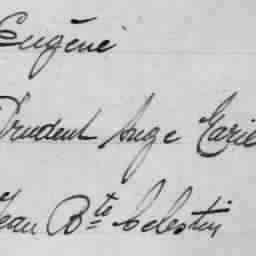 Eugène
Prudent Ange Marie
Jean Bte Célestin